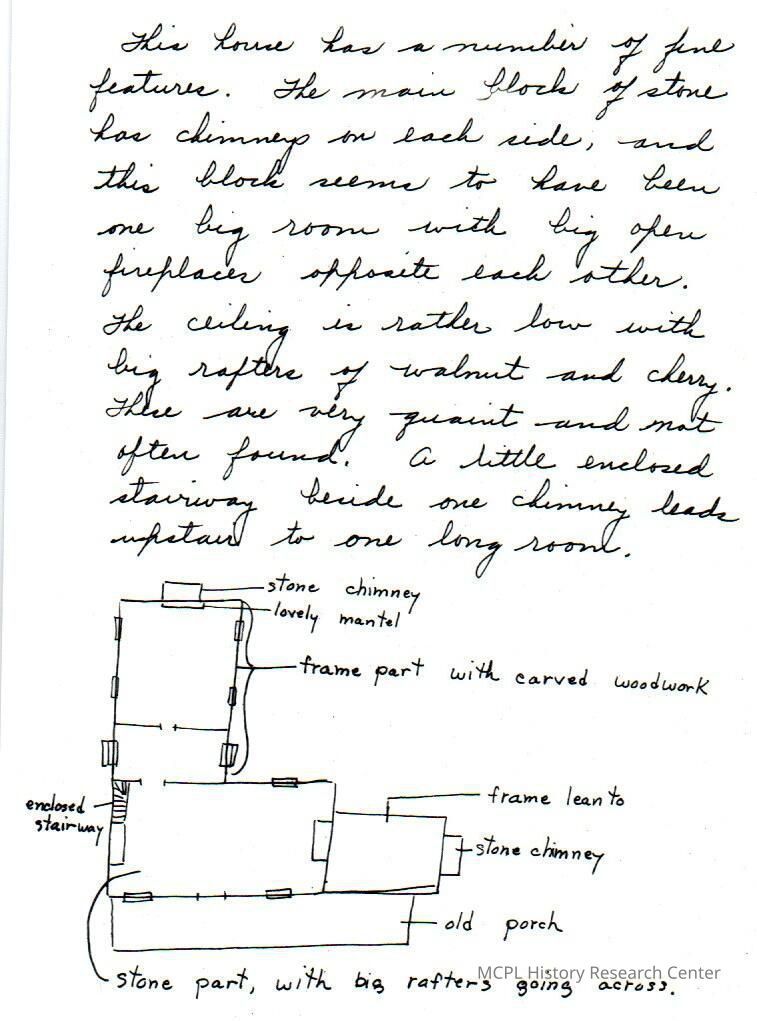 This house has a number of fine
features. The main block of stone
has chimneys on each side, and
this block seems to have been
one big room with big open
fireplaces opposite each other.
The ceiling is rather low with
big rafters of walnut and cherry.
These are very quaint and not
often found. A little enclosed
stairway beside one chimney leads
upstair to one long room.
stone chimney
lovely mantel
frame part with carved woodwork
enclosed
stairway
frame lean to
stone chimney
old porch
stone part, with big rafters going across.
MCPL History Research Center